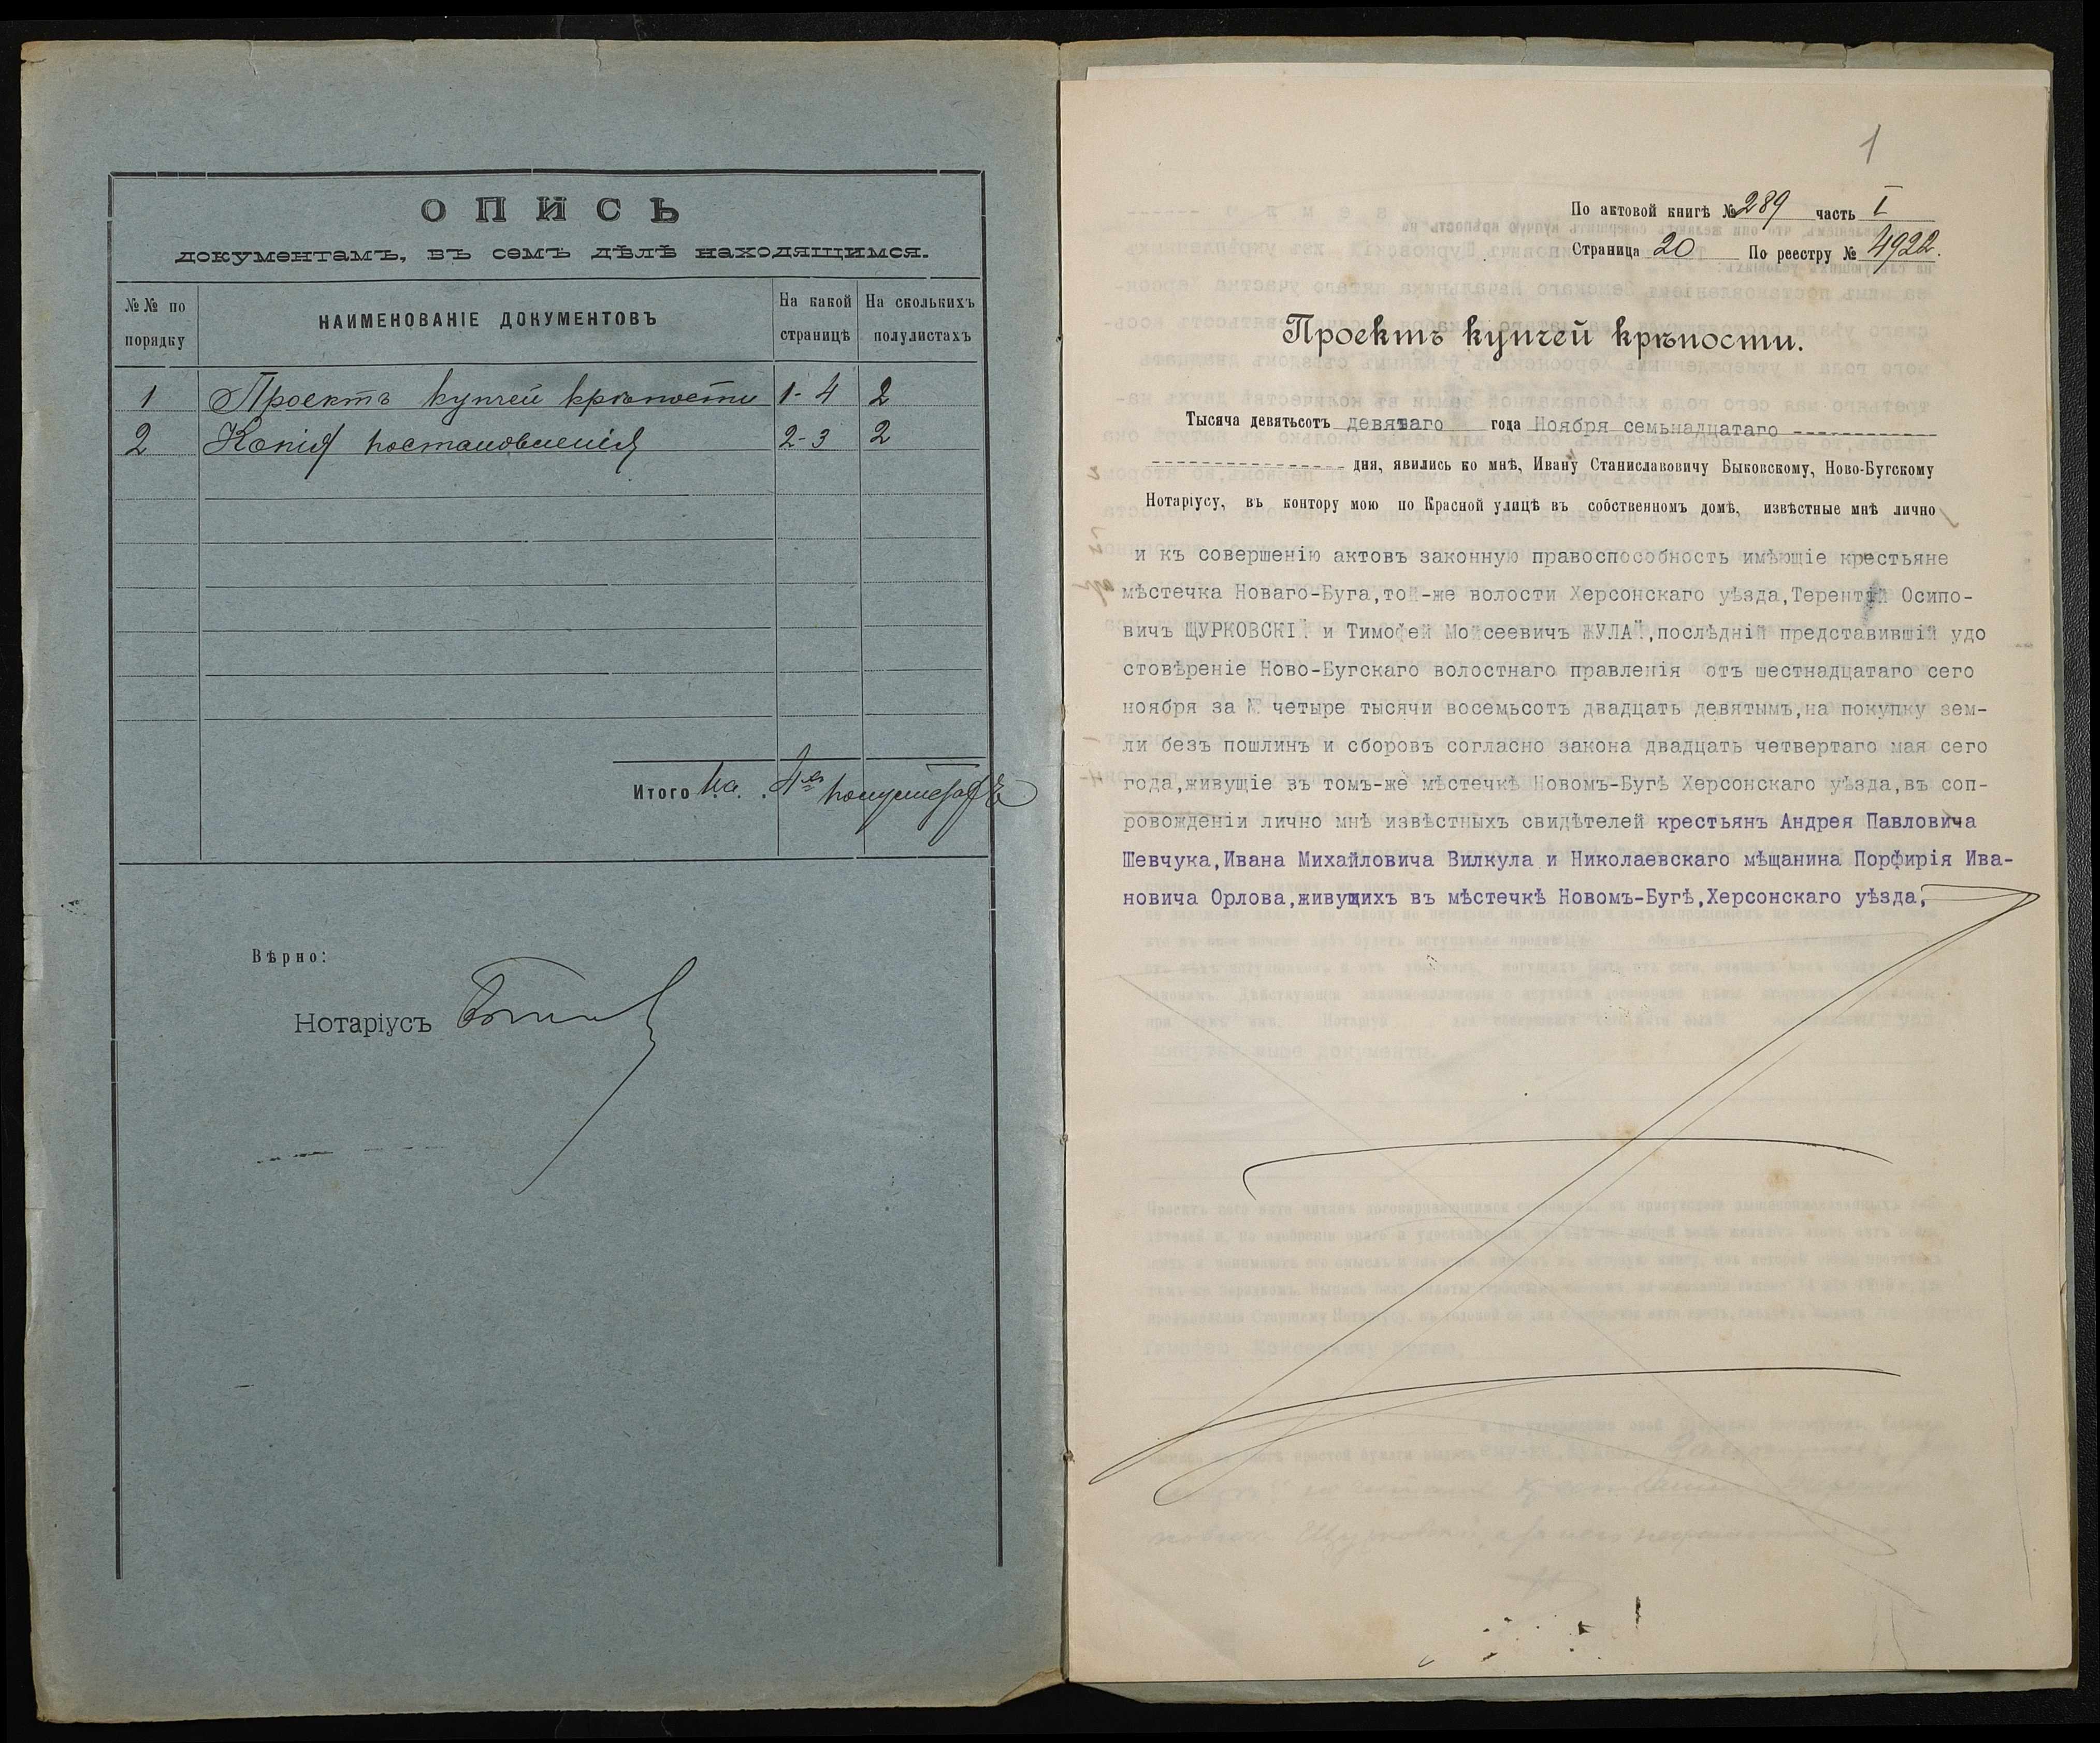 ОПИСЬ
документамъ, въ семъ дѣлѣ находящимся.
№№ по порядку
НАИМЕНОВАНІЕ ДОКУМЕНТОВЪ
На какой страницѣ
На сколькихъ полулистахъ
1 Проектъ купчей крѣпости 1-4 2
2 Копія постановленія 2-3 2
Итого на 4-хъ полулистахъ
Вѣрно:
Нотаріусъ
1
По актовой книгѣ № 289 часть I
Страница 20 По реестру № 4922.
Проектъ купчей крѣпости.
Тысяча девятьсотъ девятаго года Ноября семьнадцатаго -----------
---------------- дня, явились ко мнѣ, Ивану Станиславовичу Быковскому, Ново-Бугскому
Нотаріусу, въ контору мою по Красной улицѣ въ собственномъ домѣ, извѣстные мнѣ лично
и къ совершенію актовъ законную правоспособность имѣющіе крестьяне
мѣстечка Новаго-Буга,той-же волости Херсонскаго уѣзда,Терентій Осипо-
вичъ ЩУРКОВСКІЙ и Тимофей Мойсеевичъ ЖУЛАЙ,послѣдній представившій удо
стовѣреніе Ново-Бугскаго волостнаго правленія отъ шестнадцатаго сего
ноября за № четыре тысячи восемьсотъ двадцать девятымъ,на покупку зем-
ли безъ пошлинъ и сборовъ согласно закона двадцать четвертаго мая сего
года,живущіе въ томъ-же мѣстечкѣ Новомъ-Бугѣ Херсонскаго уѣзда,въ соп-
ровожденіи лично мнѣ извѣстныхъ свидѣтелей крестьянъ Андрея Павловича
Шевчука,Ивана Михайловича Вилкула и Николаевскаго мѣщанина Порфирія Ива-
новича Орлова,живущихъ въ мѣстечкѣ Новомъ-Бугѣ,Херсонскаго уѣзда,